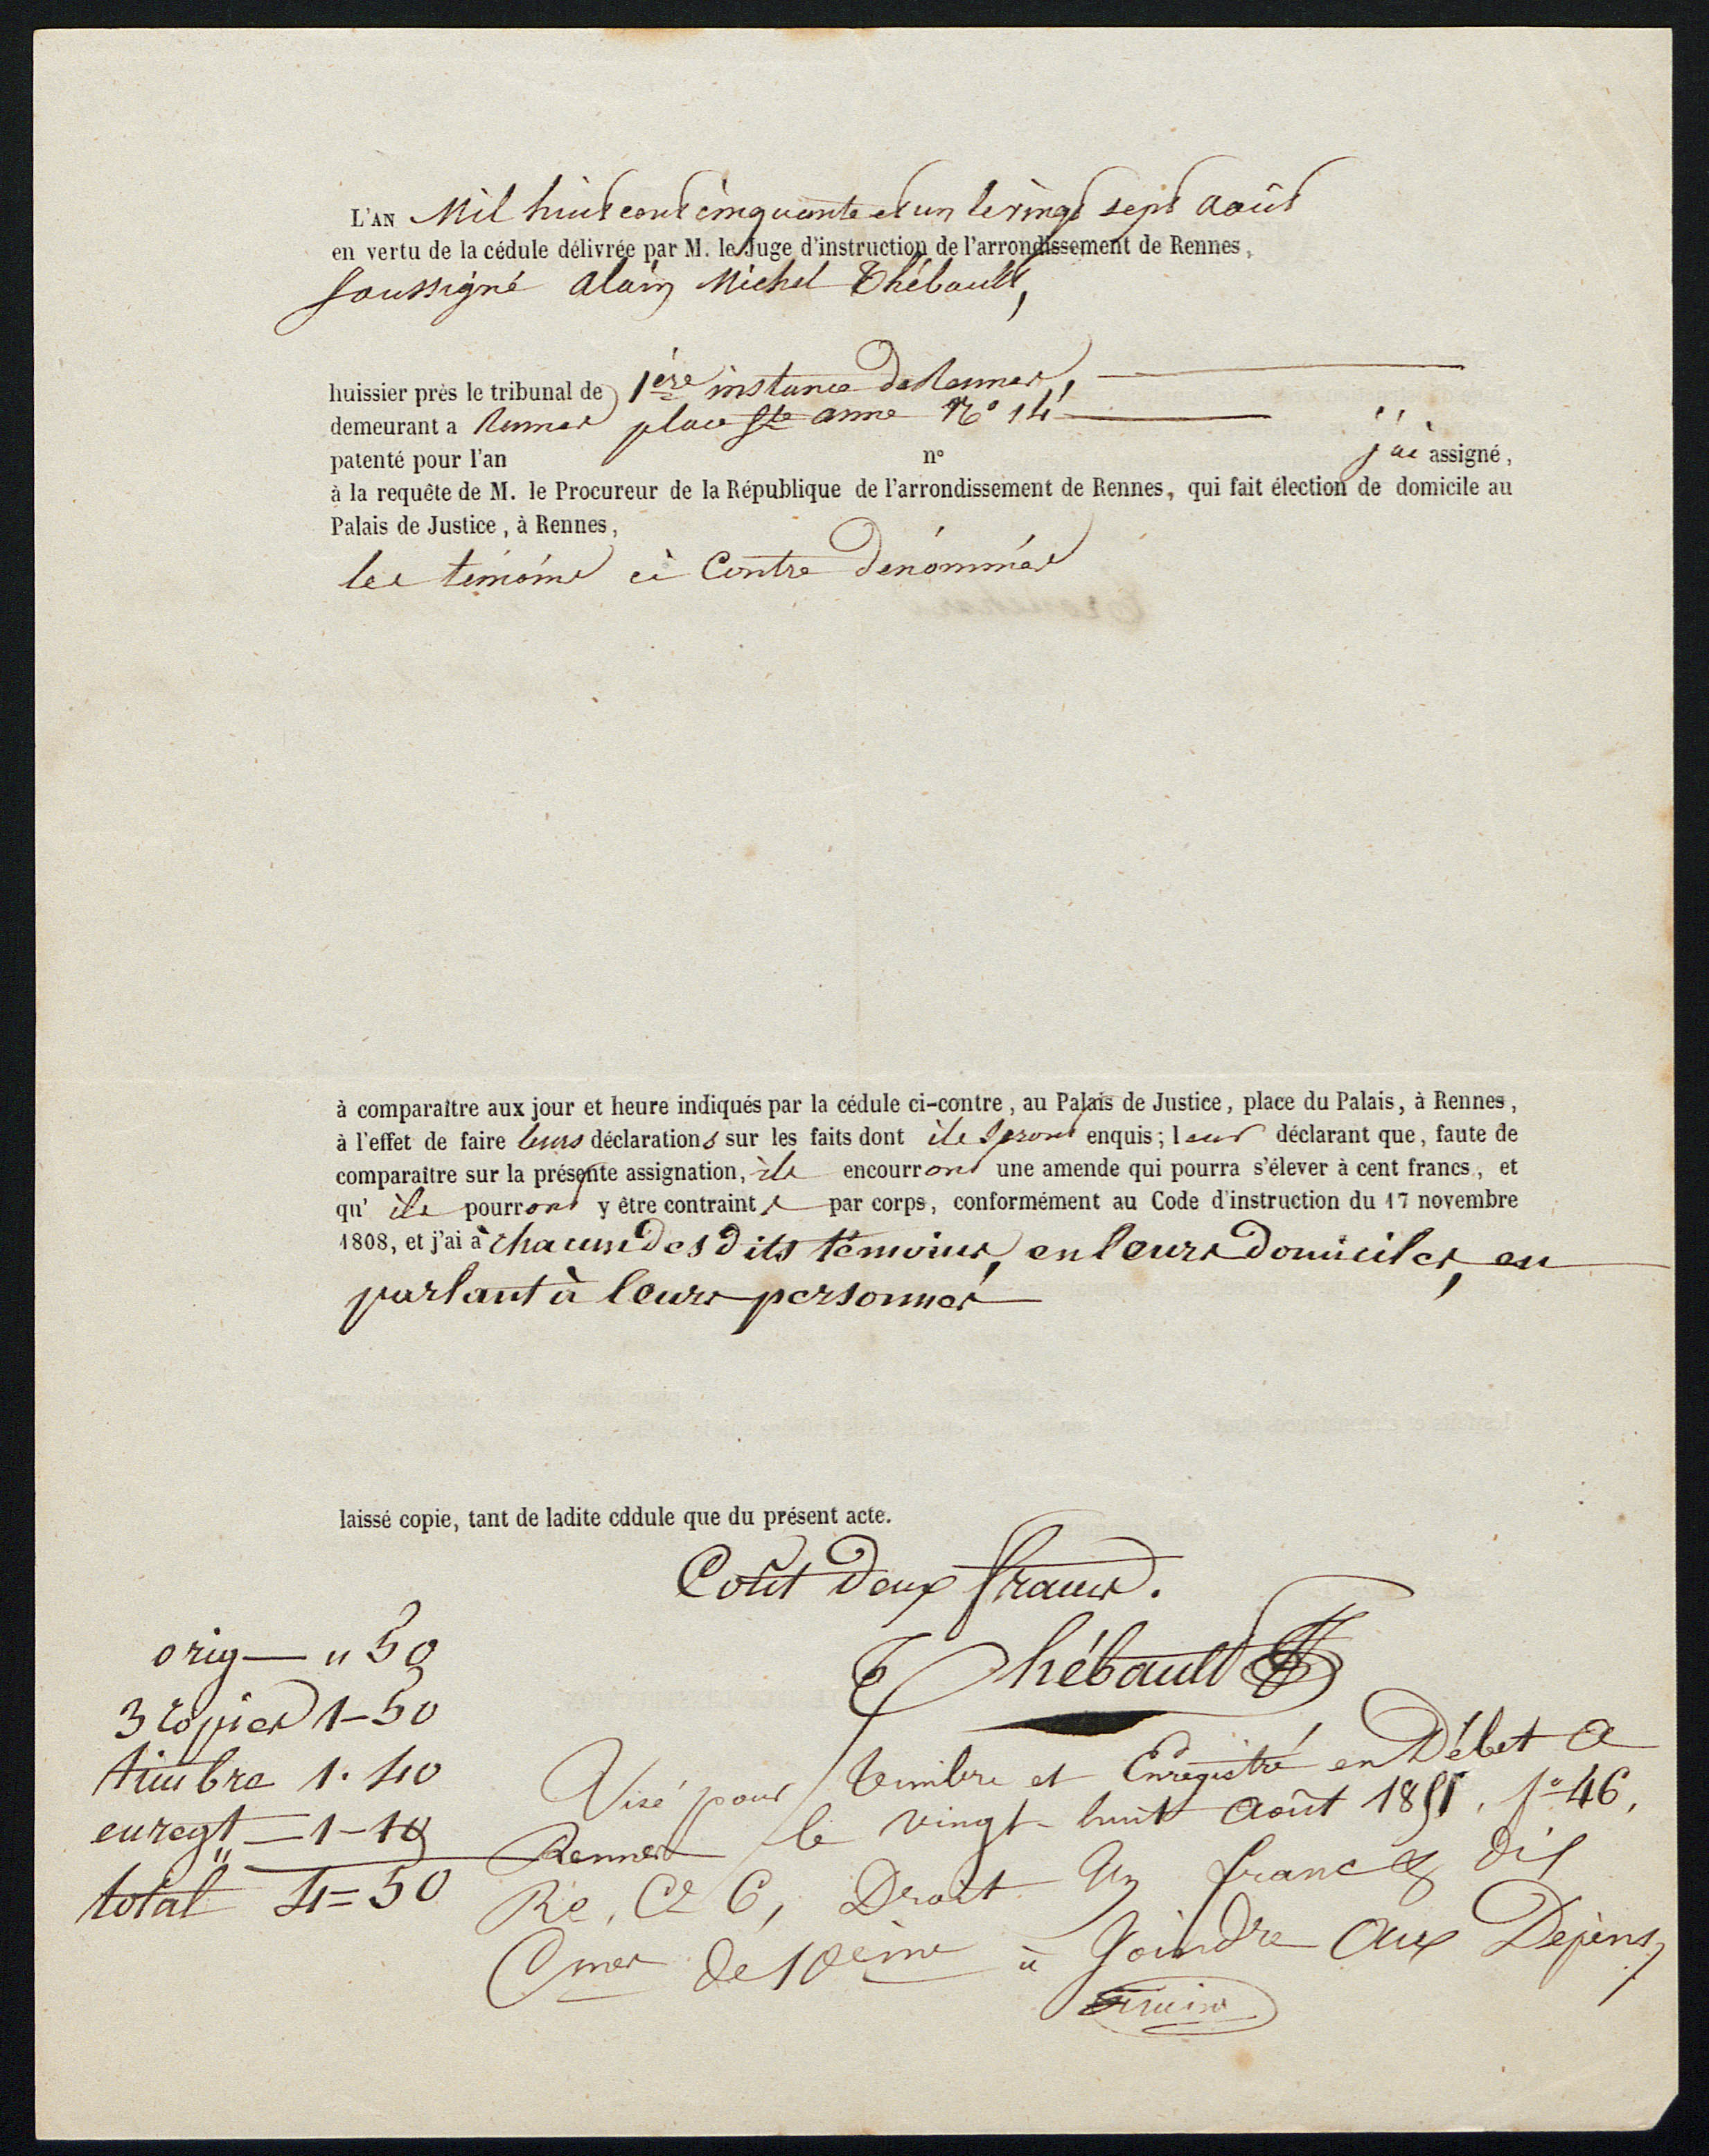 L'AN Mil huit cent cinquante et un le vingt sept août
en vertu de la cédule délivrée par M. le Juge d'instruction de l'arrondissement de Rennes,
soussigné Alain Michel Thébault,
huissier près le tribunal de 1ère instance de Rennes,
demeurant a Rennes place Ste anne No 14
patenté pour l'an n° j'ai assigné,
à la requête de M. le Procureur de la République de l'arrondissement de Rennes, qui fait élection de domicile au
Palais de Justice, à Rennes,
les témoins ci Contre dénommés
à comparaître aux jour et heure indiqués par la cédule ci-contre, au Palais de Justice, place du Palais, à Rennes,
à l'effet de faire leurs déclarations sur les faits dont ils seront enquis; leur déclarant que, faute de
comparaître sur la présente assignation, ils encourront une amende qui pourra s'élever à cent francs, et
qu' ils pourront y être contraint s par corps, conformément au Code d'instruction du 17 novembre
1808, et j'ai à chacun des dits témoins, en leurs domiciles, en
parlant à leurs personnes
laissé copie, tant de ladite cddule que du présent acte.
Coût deux francs.
Thébault
orig — " 50
3 copies 1-50
timbre 1. 40
enregt — 1-10
total 4=50
Visé pour timbre et Enregistré en Débet a
Rennes le vingt-huit août 1851. fo 46,
Ro, Ce 6, Droit Un franc & dix
Cmes de 10eime à Joindre aux Depens